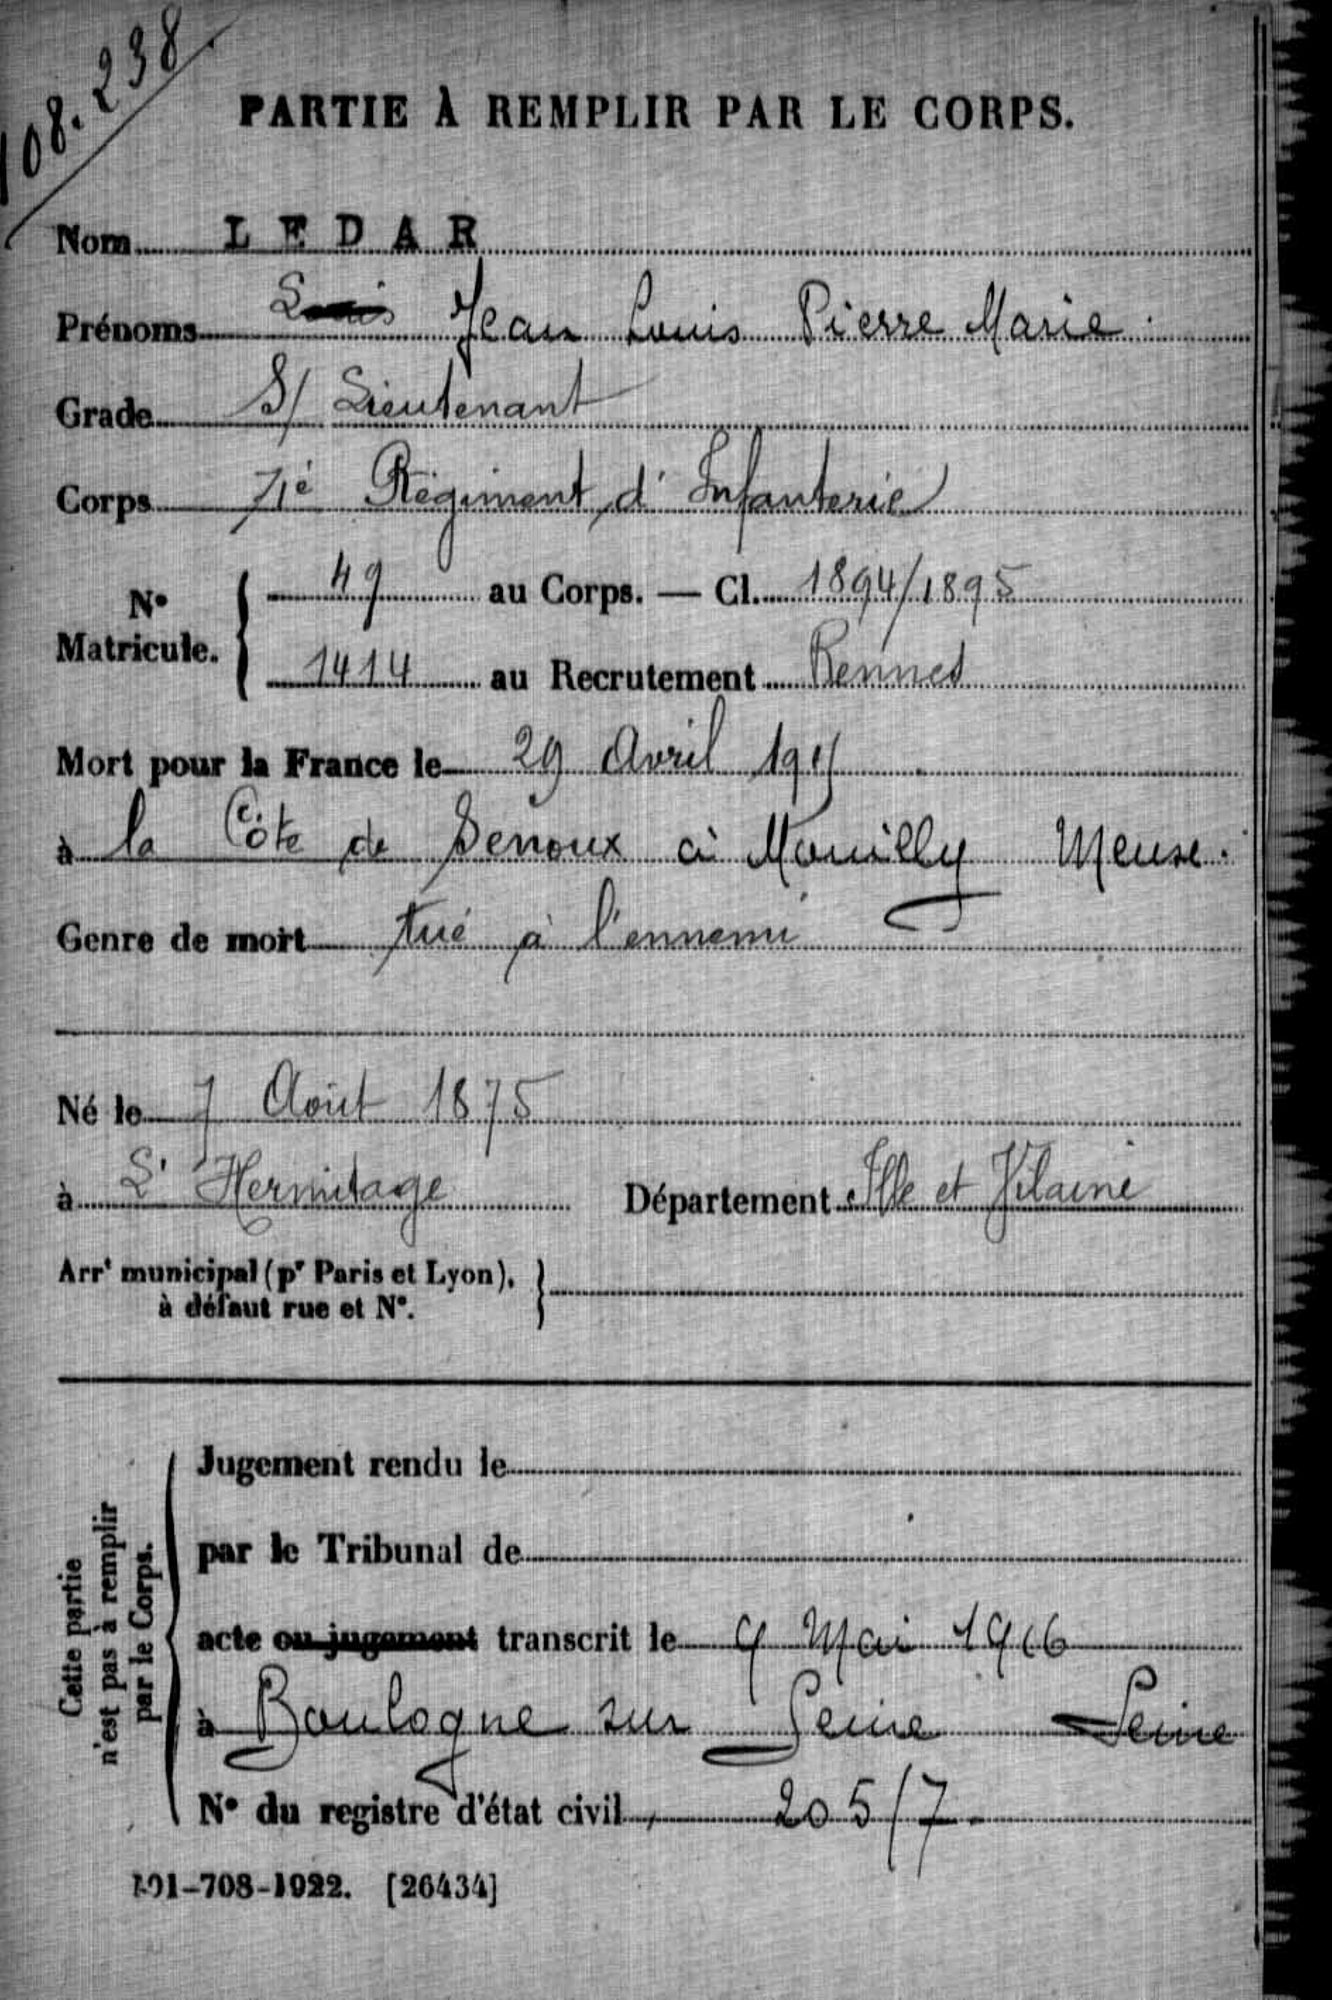 108.238
PARTIE À REMPLIR PAR LE CORPS.
Nom LEDAR
Prénoms Louis Jean Louis Pierre Marie.
Grade S/ Lieutenant
Corps 71è Régiment d'Infanterie
N° Matricule. 49 au Corps. — Cl. 1894/1895
1414 au Recrutement Rennes
Mort pour la France le 29 Avril 1915
à la Côte de Senoux à Mouilly Meuse.
Genre de mort tué à l'ennemi
Né le 7 Août 1875
à L'Hermitage Département Ille et Vilaine
Arrt municipal (pr Paris et Lyon),
à défaut rue et N°.
Cette partie
n'est pas à remplir
par le Corps.
Jugement rendu le
par le Tribunal de
acte ou jugement transcrit le 9 Mai 1916
à Boulogne sur Seine Seine
N° du registre d'état civil 205/7-
101-708-1922. [26434]